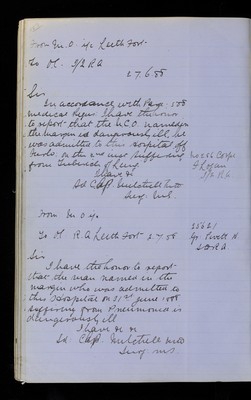 From M.O. i/c Leith Fort
To O.C. 1/2 R A
27.6.88
Sir
In accordance with Para. 178
Medical Regns I have the honor
to report that the N.C.O. named in
the margin is dangerously ill, he
was admitted to this Hospital off
on the 2nd inst suffering
from of Lung
I have &c
Sd Chas. Mitchell MD
Surg. M.S.
Corpl
J Logan
1/2 R A
From M.O. i/c
To O.C. R.A. Leith Fort 2.7.88
Sir
I have the honor to report
that the man named in the
margin who was admitted to
this Hospital on 21st June 1888
suffering from Pneumonia is
dangerously ill
I have &c &c
Sd. Chas. Mitchell MD
Surg M.S
Gr.